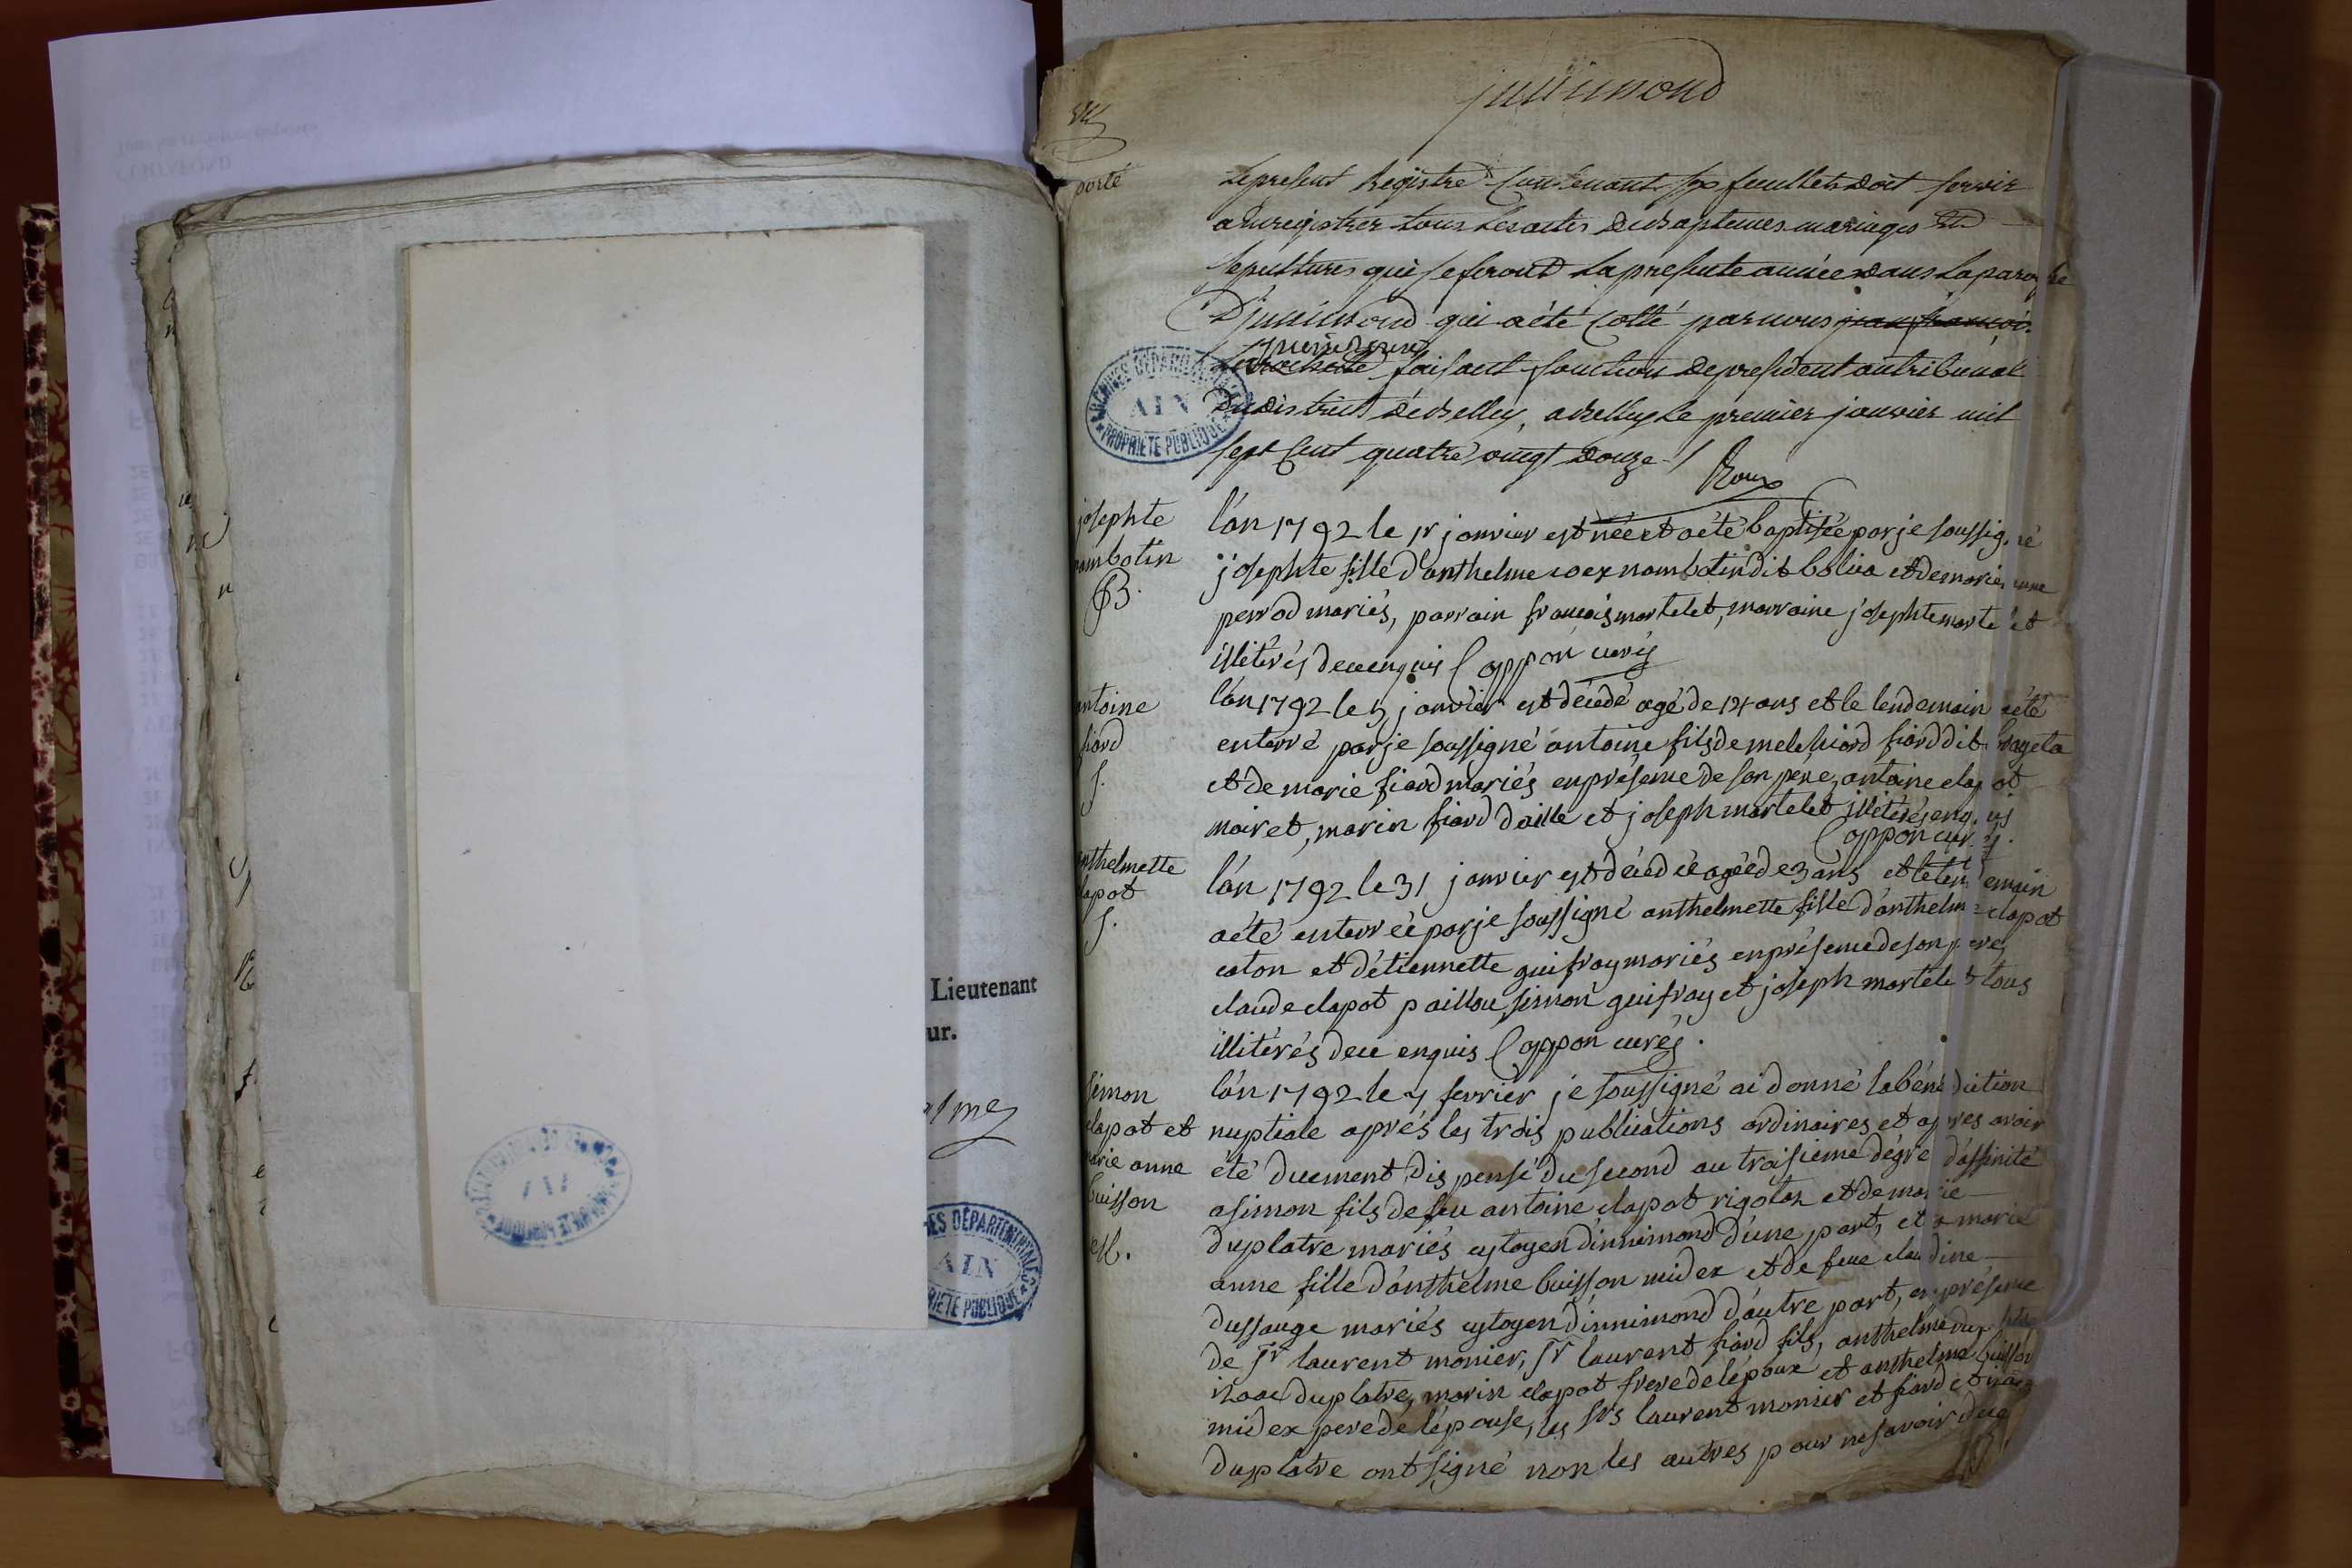 Lieutenant
ur.
AIN
PROPRIETE PUBLIQUE
innimond
porté
Le present Registre contenant six feuillets doit servir
a Enregistrer tous les actes de baptemes mariages et
sepultures qui se feront la presente année dans la paroisse
d'innimond qui a été cotté par nous jean françois
faisant fonction de president au tribunal
du district de belley, a belley le premier janvier mil
sept cent quatre vingt douze
Roux
josephte
nambotin
B.
l'an 1792 le 1r janvier est née et a été baptisée par je soussigné
josephte fille d'anthelme nambotin dit bolica et de marie anne
perrod mariés, parrain francois martelet, marraine josephte martelet
illitérés de ce enquis Coppon curé
antoine
fiard
S.
l'an 1792 le 5 janvier est décédé agé de 14 ans et le lendemain a été
enterré par je soussigné antoine fils de melchiord fiard dit
et de marie fiard mariés en présence de son père, antoine clapot
moiret, marin fiard daille et joseph martelet illitérés enquis
Coppon curé
anthelmette
clapot
S.
l'an 1792 le 31 janvier est décédée agée de 3 ans et le lendemain
a été enterrée par je soussigné anthelmette fille d'anthelme clapot
caton et d'étiennette guifray mariés en présence de son pere,
claude clapot paillou, simon guifray et joseph martelet tous
illitérés de ce enquis Coppon curé.
simon
clapot et
marie anne
buisson
M.
l'an 1792 le 7 fevrier je soussigné ai donné la bénédiction
nuptiale aprés les trois publications ordinaires et apres avoir
été duement dispensé du second au troisieme dégré d'affinité
a simon fils de feu antoine clapot rigolax et de marie
duplatre mariés cytoyen d'innimond d'une part, et a marie
anne fille d'anthelme buisson midex et de feue claudine
dussauge mariés cytoyen d'innimond d'autre part, en présence
de sr laurent monier, sr laurent fiard fils, anthelme duplatre
izaac duplatre, marin clapot frere de l'époux et anthelme buisson
midex pere de l'épouse, les srs laurent monier et fiard et izaac
duplatre ont signé non les autres pour ne savoir due